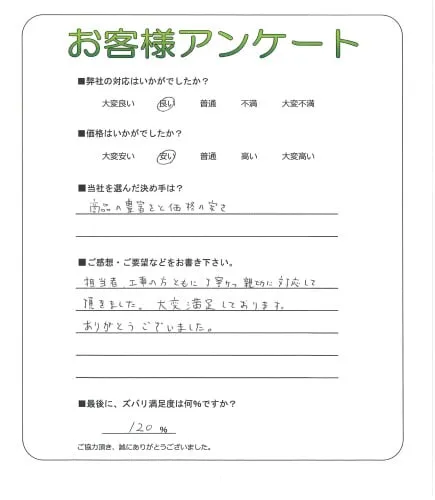 お客様アンケート
■弊社の対応はいかがでしたか?
大変良い 良い 普通 不満 大変不満
■価格はいかがでしたか?
大変安い 安い 普通 高い 大変高い
■当社を選んだ決め手は?
商品の豊富さと価格の安さ
■ご感想・ご要望などをお書き下さい。
担当者、工事の方ともに丁寧かつ親切に対応して
頂きました。大変満足しております。
ありがとうございました。
■最後に、ズバリ満足度は何%ですか?
120 %
ご協力頂き、誠にありがとうございました。